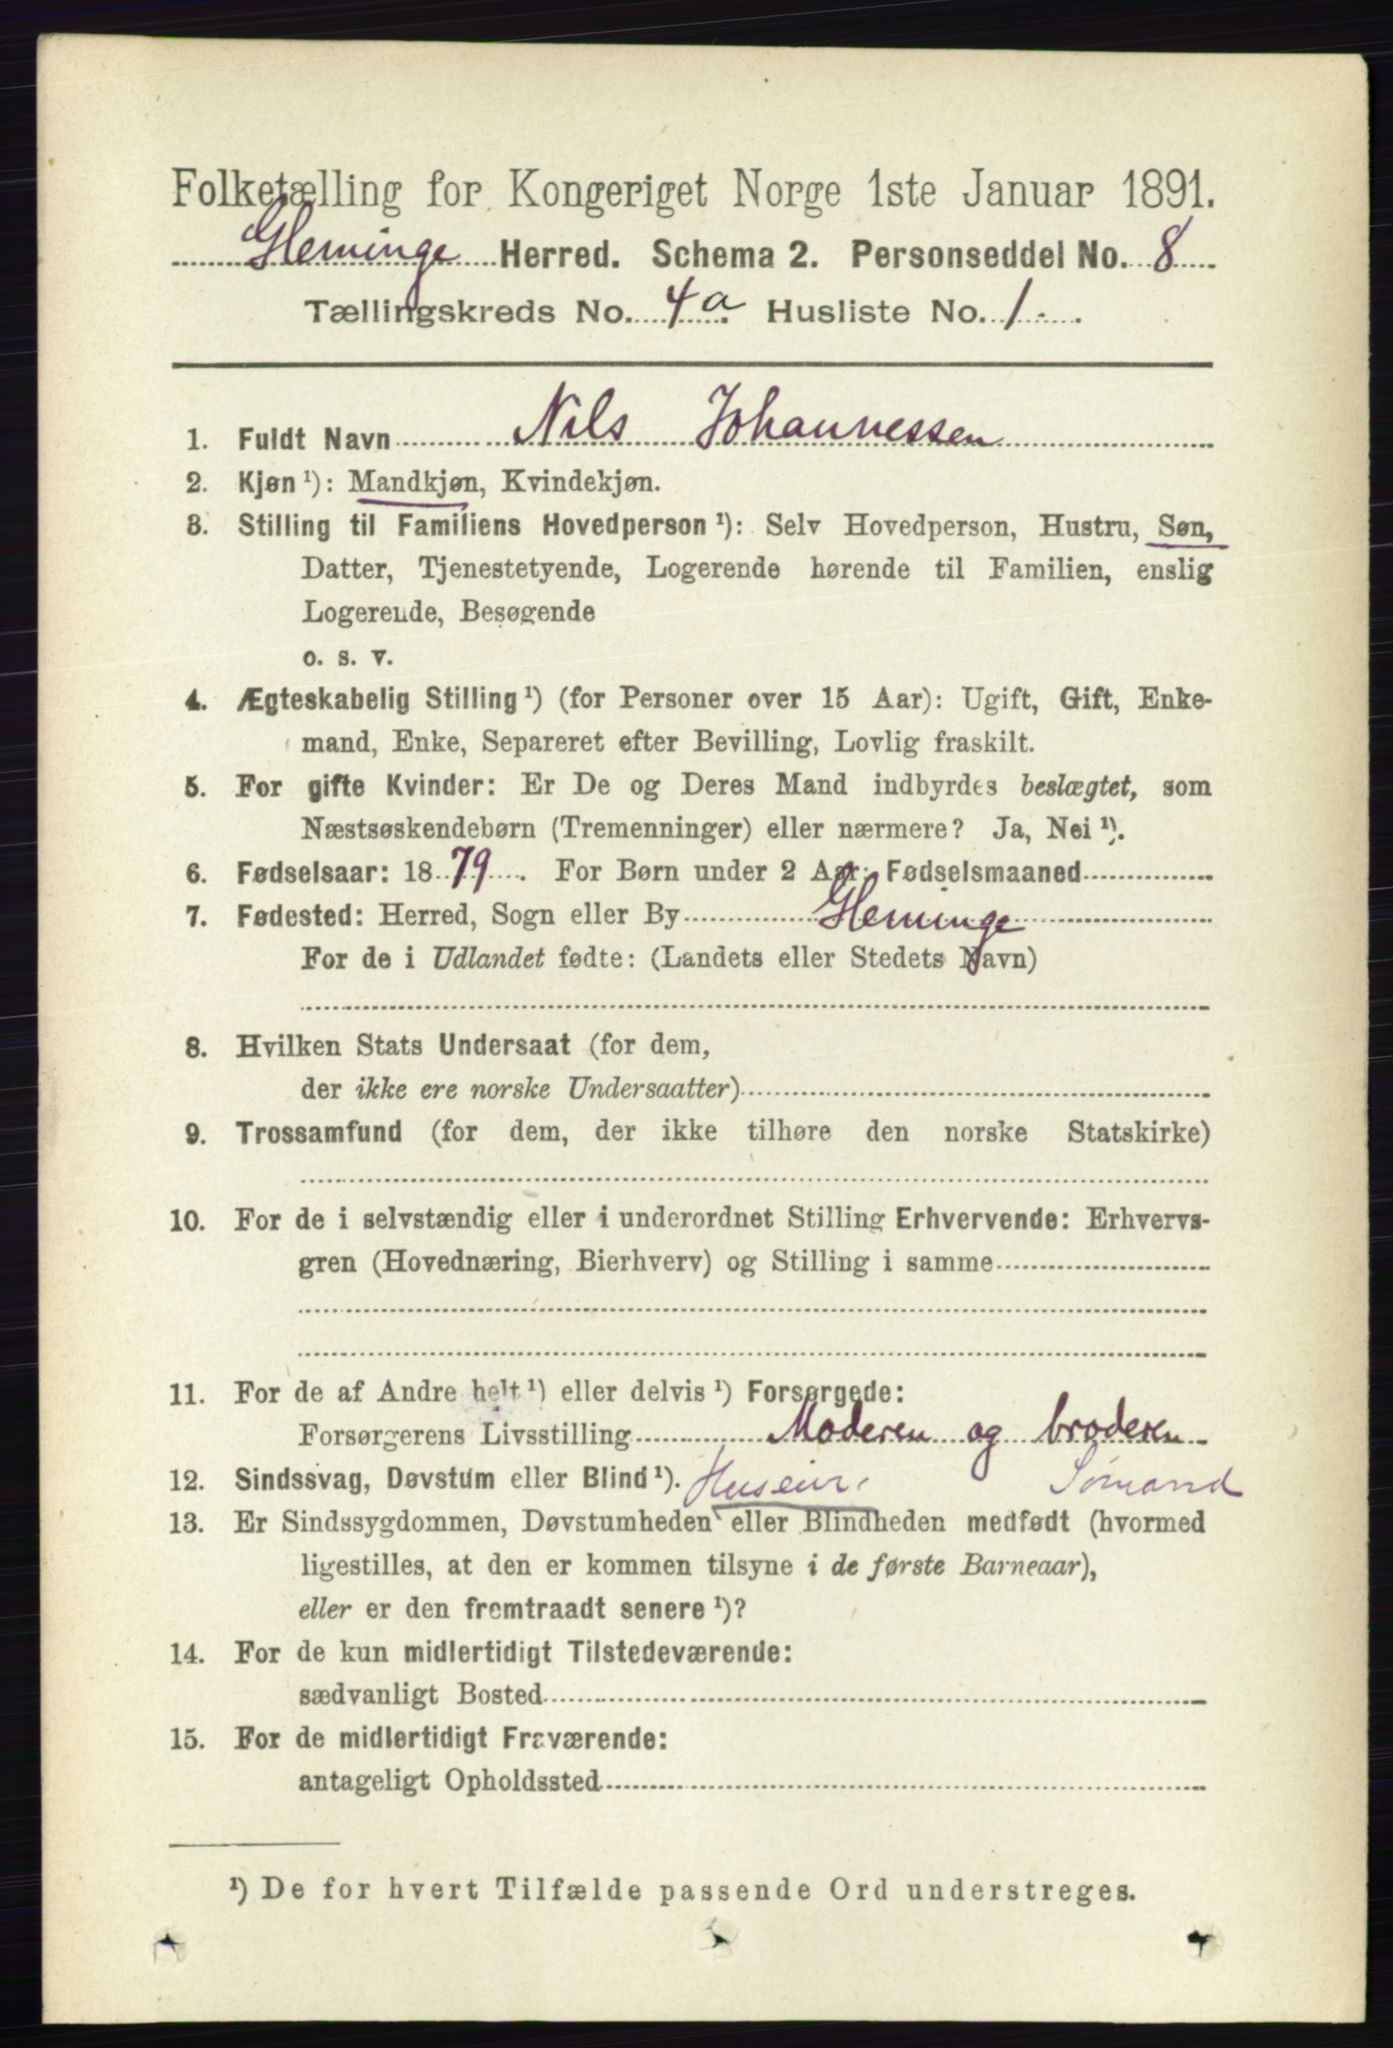 Folketælling for Kongeriget Norge 1ste Januar 1891.
Glemminge Herred. Schema 2. Personseddel No. 8
Tællingskreds No. 4a Husliste No. 1.
1. Fuldt Navn Nils Johannessen
2. Kjøn ¹): Mandkjøn, Kvindekjøn.
3. Stilling til Familiens Hovedperson ¹): Selv Hovedperson, Hustru, Søn,
Datter, Tjenestetyende, Logerende hørende til Familien, enslig
Logerende, Besøgende
o. s. v.
4. Ægteskabelig Stilling ¹) (for Personer over 15 Aar): Ugift, Gift, Enke-
mand, Enke, Separeret efter Bevilling, Lovlig fraskilt.
5. For gifte Kvinder: Er De og Deres Mand indbyrdes beslægtet, som
Næstsøskendebørn (Tremenninger) eller nærmere? Ja, Nei ¹).
6. Fødselsaar: 1879. For Børn under 2 Aar: Fødselsmaaned
7. Fødested: Herred, Sogn eller By Glemminge
For de i Udlandet fødte: (Landets eller Stedets Navn)
8. Hvilken Stats Undersaat (for dem,
der ikke ere norske Undersaatter)
9. Trossamfund (for dem, der ikke tilhøre den norske Statskirke)
10. For de i selvstændig eller i underordnet Stilling Erhvervende: Erhvervs-
gren (Hovednæring, Bierhverv) og Stilling i samme
11. For de af Andre helt ¹) eller delvis ¹) Forsørgede:
Forsørgerens Livsstilling Moderen og broderen
12. Sindssvag, Døvstum eller Blind ¹). Huseier. Sømand
13. Er Sindssygdommen, Døvstumheden eller Blindheden medfødt (hvormed
ligestilles, at den er kommen tilsyne i de første Barneaar),
eller er den fremtraadt senere ¹)?
14. For de kun midlertidigt Tilstedeværende:
sædvanligt Bosted
15. For de midlertidigt Fraværende:
antageligt Opholdssted
¹) De for hvert Tilfælde passende Ord understreges.